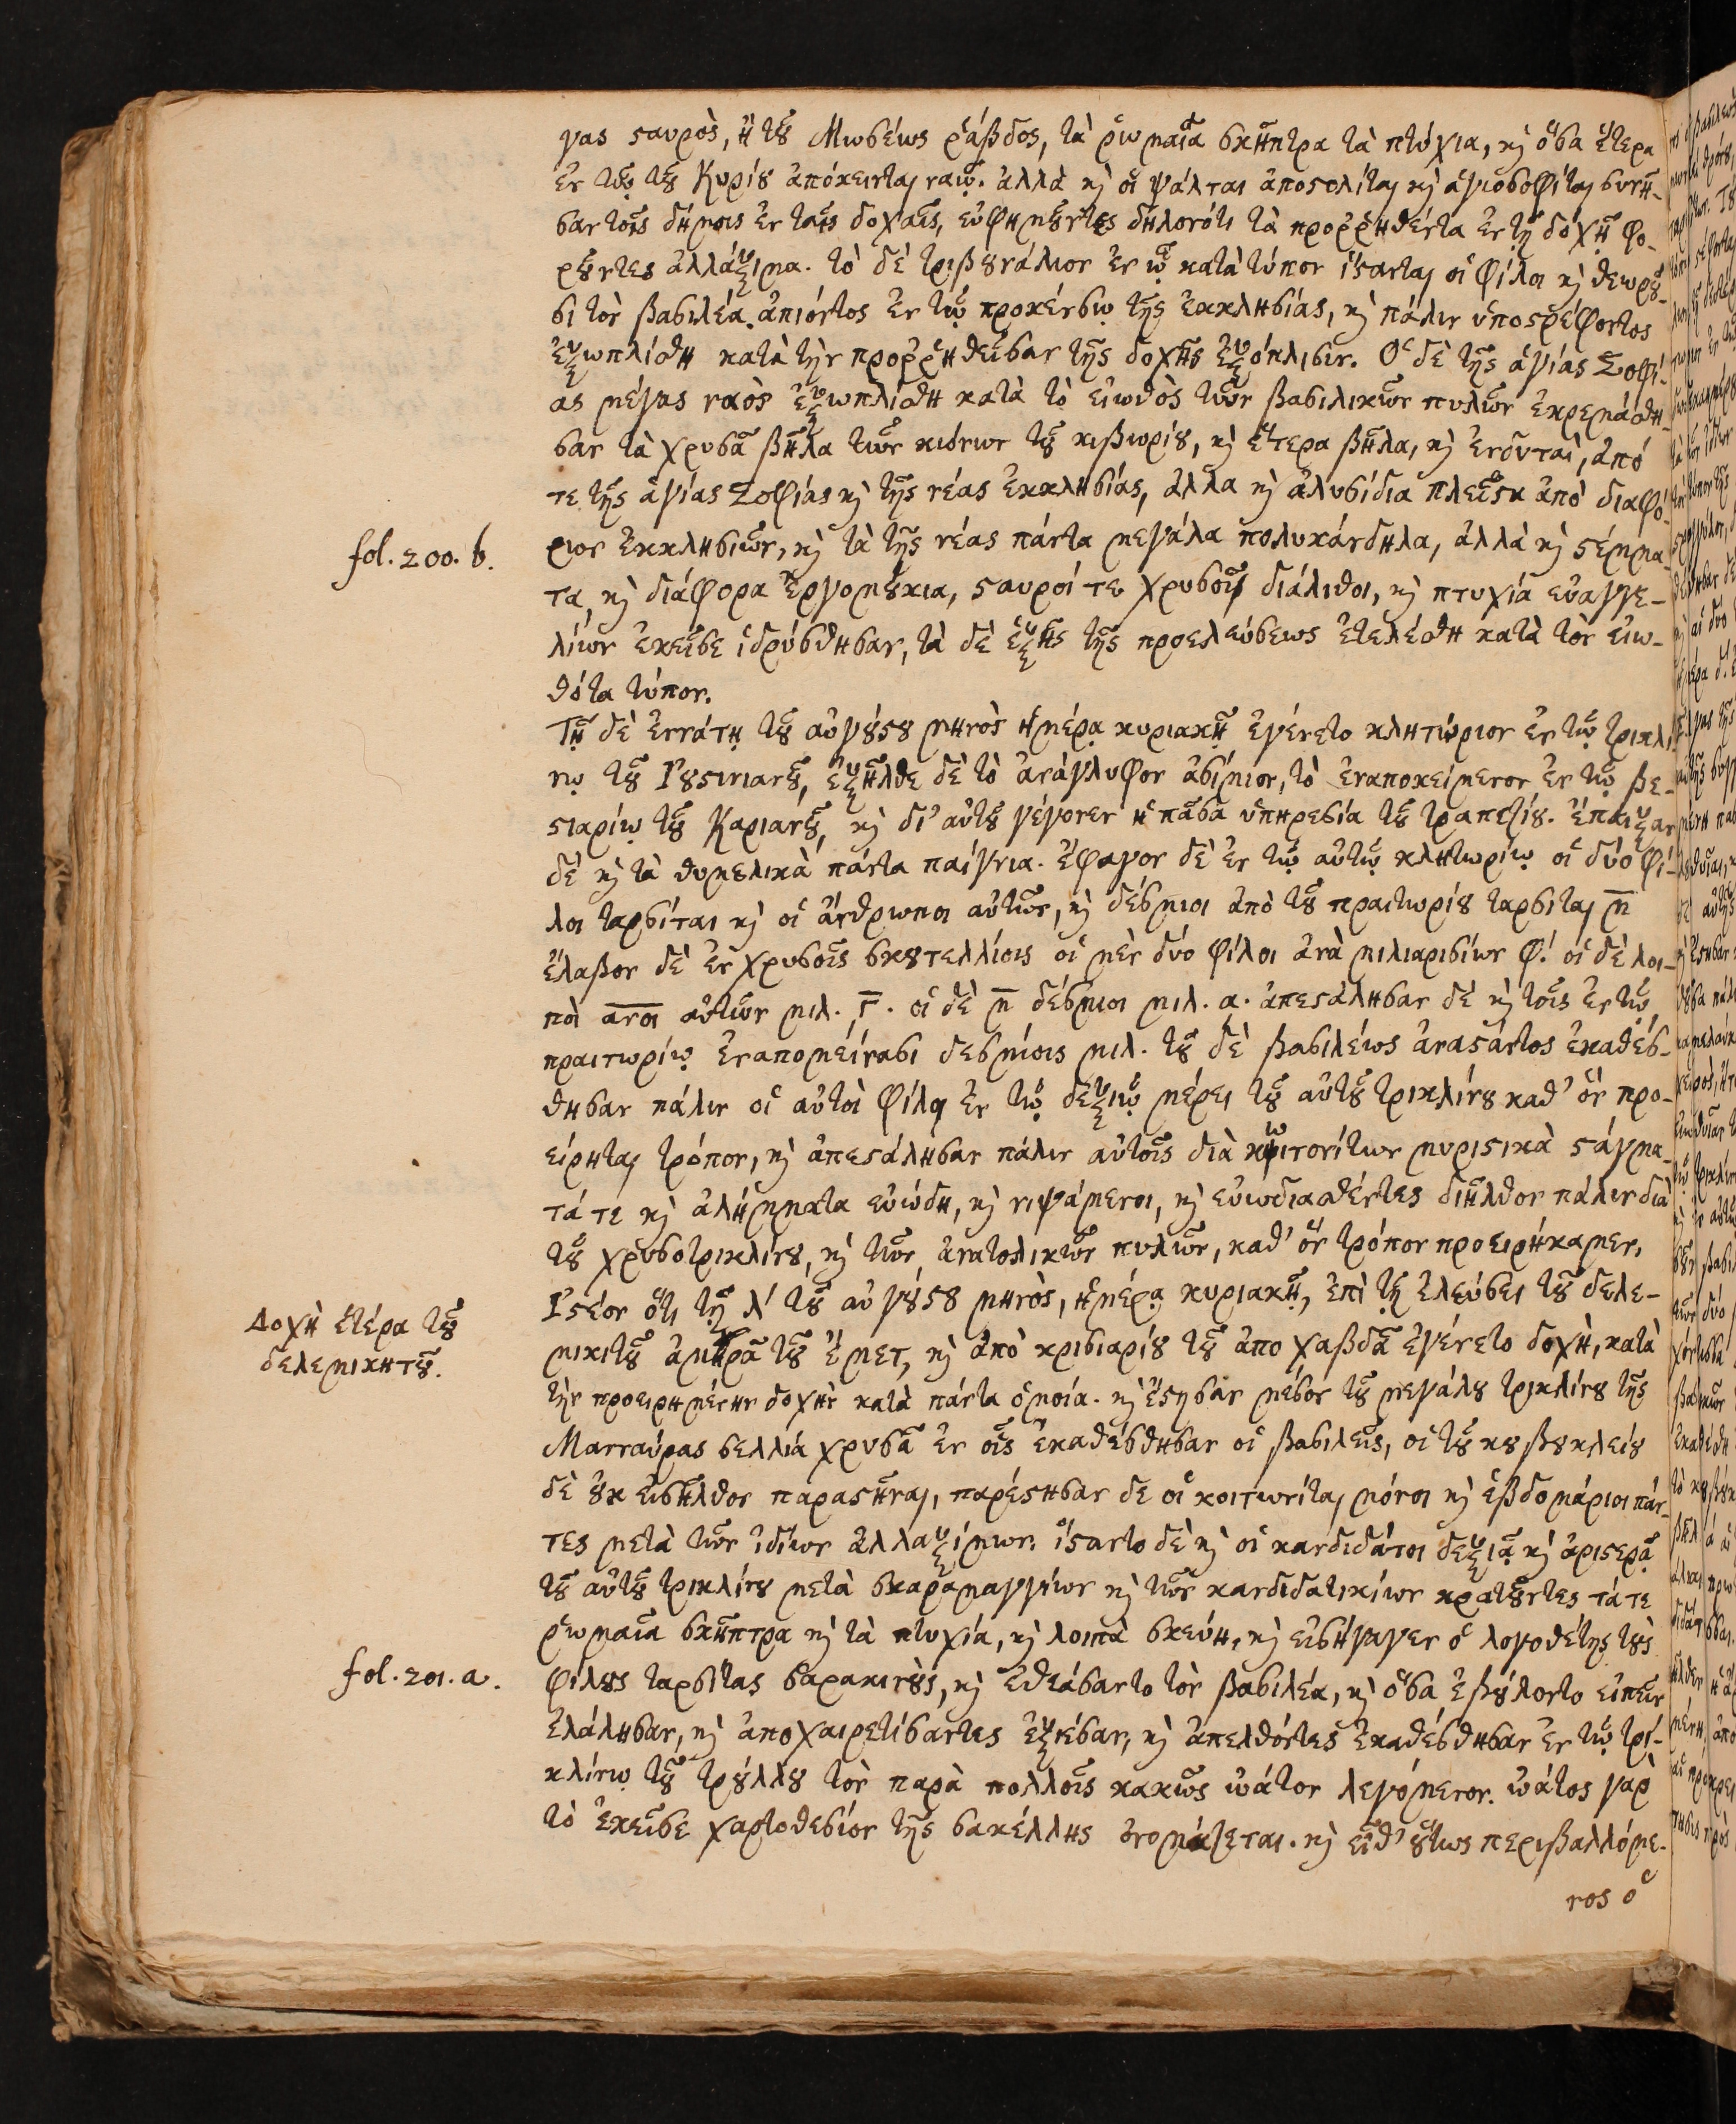 γας σαυρὸς, ἡ τȣ͂ Μωσέως ῥάβδος, τὰ ῥωμαῖα σκῆπτρα τὰ πτύχια, κ̀ ὅσα ἕτερα
ἐν τῷ τȣ͂ Κυρίȣ ἀπόκεινται ναῷ. ἀλλὰ κ̀ οἱ ψάλται ἀποστολῖται κ̀ ἁγιοσοφῖται συνῆ-
σαν τοῖς δήμοις ἐν ταῖς δοχαῖς, εὐφημȣ͂ντες δηλονότι τὰ προῤῥηθέντα ἐν τῇ δοχῇ φο-
ρȣ͂ντες ἀλλάξιμα. τὸ δὲ τριβȣνάλιον ἐν ᾧ κατὰ τύπον ἵσανται οἱ φίλοι κ̀ θεωρȣ͂-
σι τὸν βασιλέα ἀπιόντος ἐν τῷ προκένσῳ τῆς ἐκκλησίας, κ̀ πάλιν ὑποστρέφοντος
ἐξωπλίσθη κατὰ τὴν προῤῥηθεῖσαν τῆς δοχῆς ἐξόπλισιν. Ὁ δὲ τῆς ἁγίας Σοφί-
ας μέγας ναὸς ἐξωπλίσθη κατὰ τὸ εἰωθὸς τῶν βασιλικῶν πυλῶν ἐκρεμάσθη-
σαν τὰ χρυσᾶ βῆλα τῶν κιόνων τȣ͂ κιβωρίȣ, κ̀ ἕτερα βῆλα, κ̀ ἐνδύται, ἀπό
τε τῆς ἁγίας Σοφίας κ̀ τῆς νέας ἐκκλησίας, ἀλλὰ κ̀ ἀλυσίδια πλεῖστα ἀπὸ διαφό-
fol. 200. b.
ρων ἐκκλησιῶν, κ̀ τὰ τῆς νέας πάντα μεγάλα πολυκάνδηλα, ἀλλὰ κ̀ στέμμα-
τα, κ̀ διάφορα ἐργομȣ́κια, σταυροί τε χρυσοῖ διάλιθοι, κ̀ πτυχία εὐαγγε-
λίων ἐκεῖσε ἱδρύσθησαν, τὰ δὲ ἑξῆς τῆς προελεύσεως ἐτελέσθη κατὰ τὸν εἰω-
θότα τύπον.
Τῇ δὲ ἐννάτῃ τȣ͂ αὐγȣ́στȣ μηνὸς ἡμέρᾳ κυριακῇ ἐγένετο κλητώριον ἐν τῷ τρικλί-
νῳ τȣ͂ Ἰȣστινιανȣ͂, ἐξῆλθε δὲ τὸ ἀνάγλυφον ἀσίμιον, τὸ ἐναποκείμενον ἐν τῷ βε-
στιαρίῳ τȣ͂ Καριανȣ͂, κ̀ δι' αὐτȣ͂ γέγονεν ἡ πᾶσα ὑπηρεσία τȣ͂ τραπεζίȣ. Ἔπαιξαν
δὲ κ̀ τὰ θυμελικὰ πάντα παίγνια. ἔφαγον δὲ ἐν τῷ αὐτῷ κλητωρίῳ οἱ δύο φί-
λοι ταρσῖται κ̀ οἱ ἄνθρωποι αὐτῶν, κ̀ δέσμιοι ἀπὸ τȣ͂ πραιτωρίȣ ταρσῖται μ̅
ἔλαβον δὲ ἐν χρυσοῖς σκȣτελλίοις οἱ μὲν δύο φίλοι ἀνὰ μιλιαρισίων φ. οἱ δὲ λοι-
ποὶ α̅ν̅ο̅ι̅ αὐτῶν μιλ. ͵γ̅. οἱ δὲ μ̅ δέσμιοι μιλ. α. ἀπεστάλησαν δὲ κ̀ τοῖς ἐν τῷ
πραιτωρίῳ ἐναπομείνασι δεσμίοις μιλ. τȣ͂ δὲ βασιλέως ἀναστάντος ἐκαθέσ-
θησαν πάλιν οἱ αὐτοὶ φίλοι ἐν τῷ δεξιῷ μέρει τȣ͂ αὐτȣ͂ τρικλίνȣ καθ' ὃν προ-
είρηται τρόπον, κ̀ ἀπεστάλησαν πάλιν αὐτοῖς διὰ κοιτωνίτων μυριστικὰ στάγμα-
τά τε κ̀ ἀλήμματα εὐώδη, κ̀ νιψάμενοι, κ̀ εὐωδιασθέντες διῆλθον πάλιν διὰ
τȣ͂ χρυσοτρικλίνȣ, κ̀ τῶν ἀνατολικῶν πυλῶν, καθ' ὃν τρόπον προειρήκαμεν.
Δοχὴ ἑτέρα τȣ͂
δελεμικητȣ͂.
Ἰστέον ὅτι τῇ λ' τȣ͂ αὐγȣ́στȣ μηνὸς, ἡμέρᾳ κυριακῇ, ἐπὶ τῇ ἐλεύσει τȣ͂ δελε-
μικιτȣ͂ ἀμηρᾶ τȣ͂ ἔμετ, κ̀ ἀπὸ κρισιαρίȣ τȣ͂ ἀπο χαβδᾶ ἐγένετο δοχὴ, κατὰ
τὴν προειρημένην δοχὴν κατὰ πάντα ὁμοία. κ̀ ἔστησαν μέσον τȣ͂ μεγάλȣ τρικλίνȣ τῆς
Μανναύρας σελλία χρυσᾶ ἐν οἷς ἐκαθέσθησαν οἱ βασιλεῖς, οἱ τȣ͂ κȣβȣκλείȣ
δὲ ȣ̓κ εἰσῆλθον παραστῆναι, παρέστησαν δε οἱ κοιτωνῖται μόνοι κ̀ ἑβδομάριοι πάν-
τες μετὰ τῶν ἰδίων ἀλλαξίμων. ἵσταντο δὲ κ̀ οἱ κανδιδάτοι δεξιᾷ κ̀ ἀριστερᾷ
τȣ͂ αὐτȣ͂ τρικλίνȣ μετὰ σκαραμαγγίων κ̀ τῶν κανδιδατικίων κρατȣ͂ντες τά τε
ῥωμαῖα σκῆπτρα κ̀ τὰ πτυχία, κ̀ λοιπὰ σκεύη, κ̀ εἰσήγαγεν ὁ λογοθέτης τȣ̀ς
fol. 201. a.
φίλȣς ταρσίτας σαρακινȣ̀ς, κ̀ ἐθεάσαντο τὸν βασιλέα, κ̀ ὅσα ἐβȣ́λοντο εἰπεῖν
ἐλάλησαν, κ̀ ἀποχαιρετίσαντες ἐξίεσαν, κ̀ ἀπελθόντες ἐκαθέσθησαν ἐν τῷ τρι-
κλίνῳ τȣ͂ τρȣ́λλȣ τὸν παρὰ πολλοῖς κακῶς ὠάτον λεγόμενον. ὠάτος γὰρ
τὸ ἐκεῖσε χαρτοθεσίον τῆς σακέλλης ὀνομάζεται. κ̀ εἶθ' ȣ̔́τως περιβαλλόμε-
νος ὁ